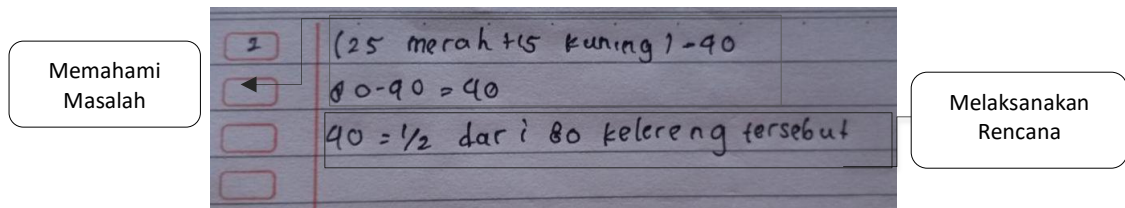 Memahami
Masalah
2
(25 merah +15 kuning) - 40
80-40 = 40
40 = 1/2 dari 80 kelereng tersebut
Melaksanakan
Rencana